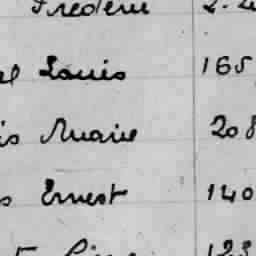 Frédéric 2.2
el Louis 165
is Marie 208
s Ernest 140
123